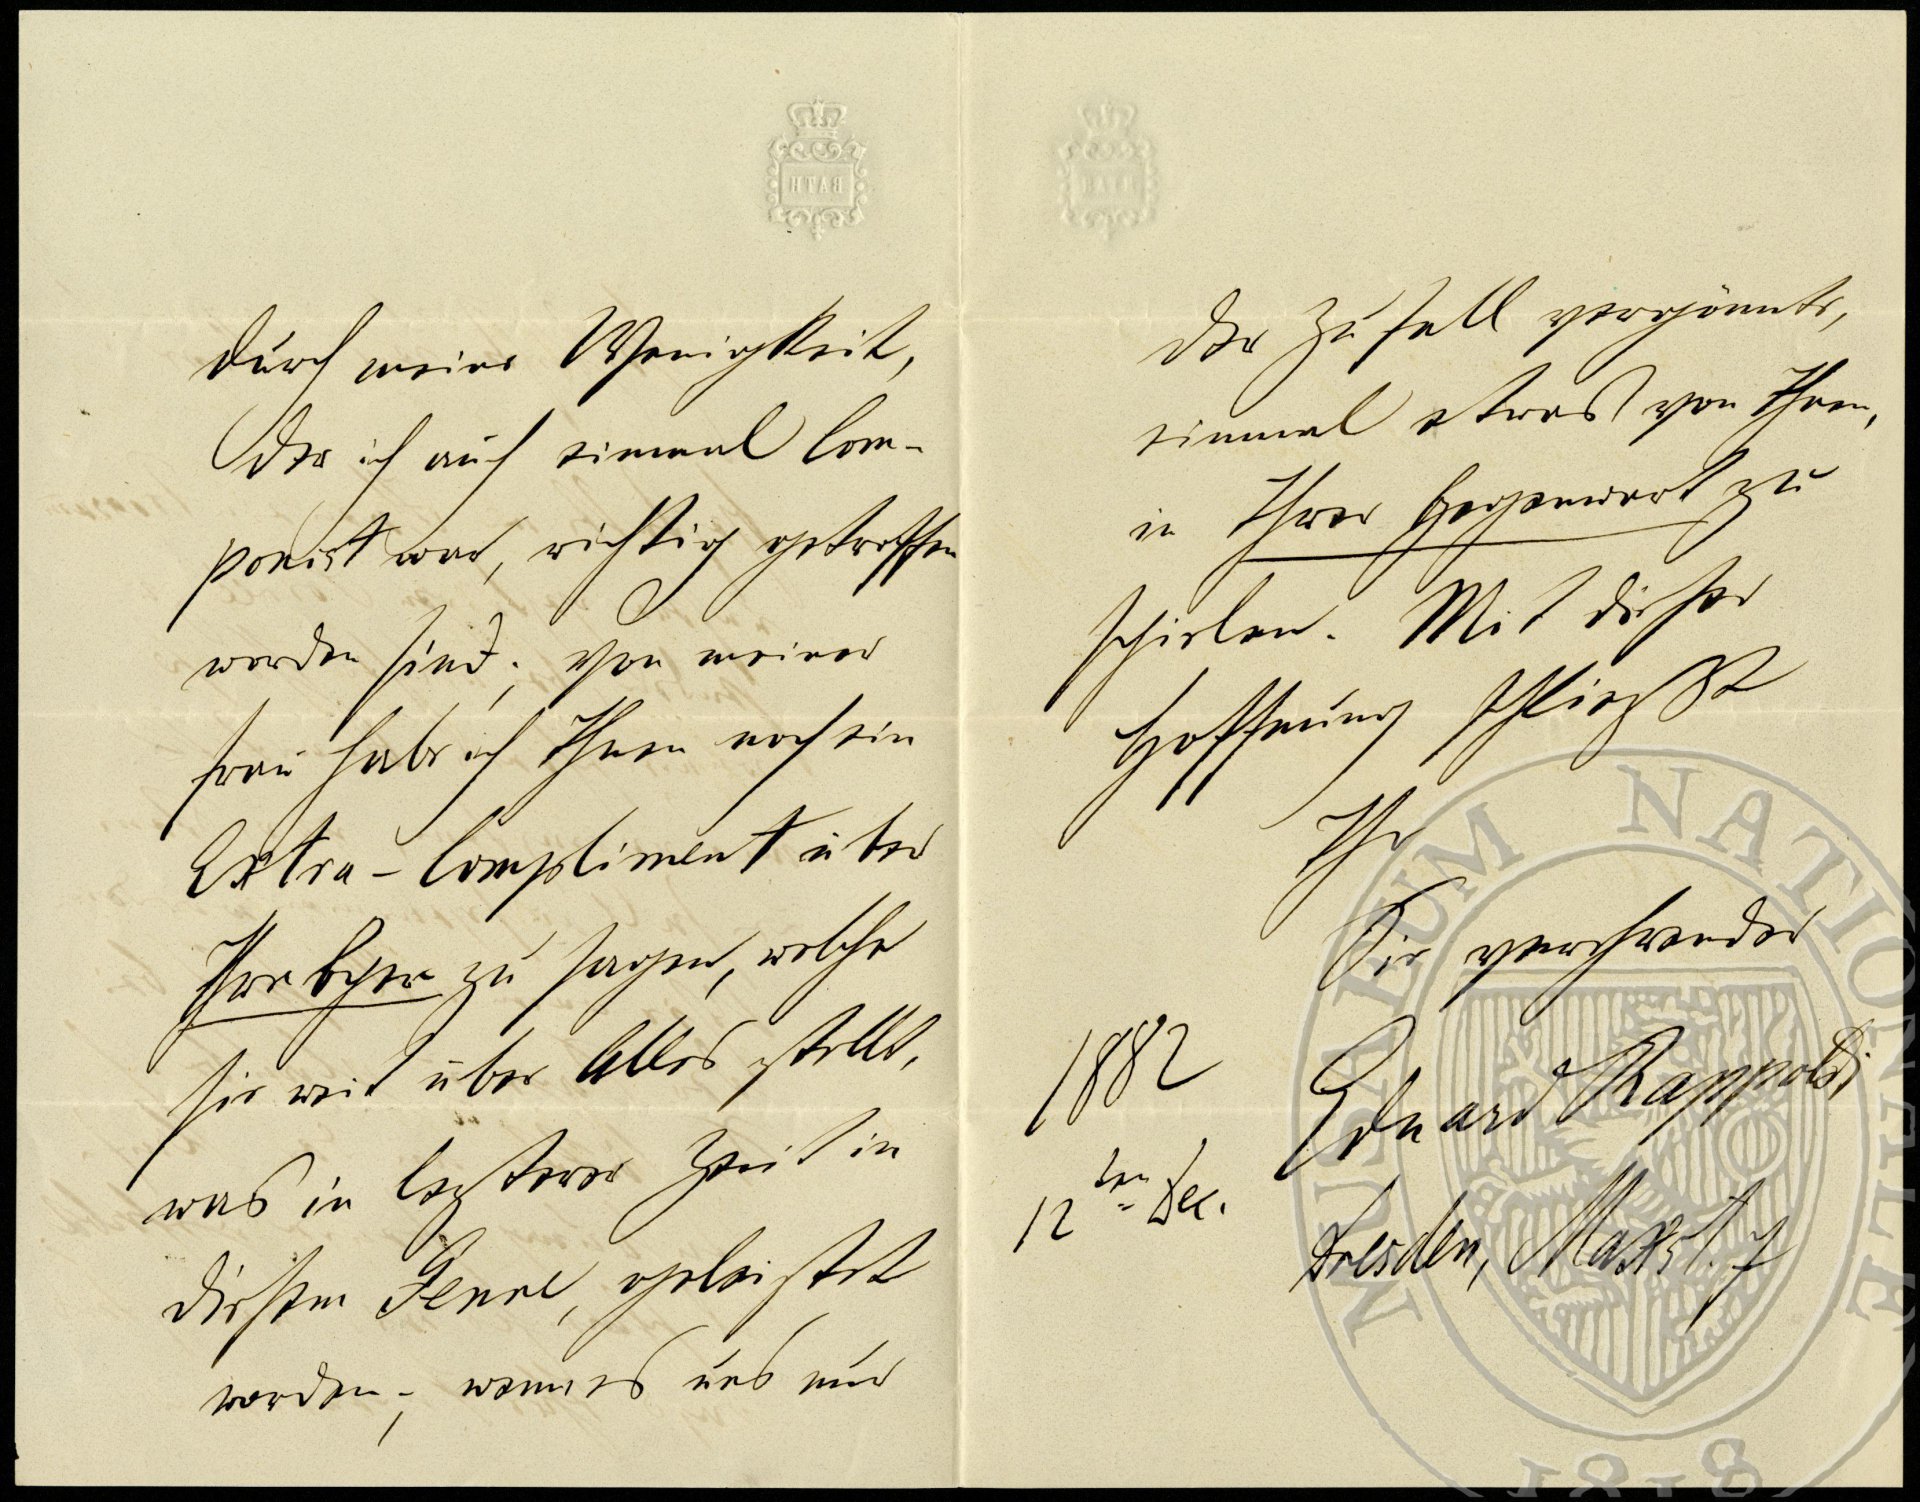 durch meine Wenigkeit,
der ich auch einmal Com-
ponist war, richtig getroffen
worden sind; von meiner
Frau habe ich Ihnen noch ein
Extra-Compliment über
Ihre Oper zu sagen, welche
sie weit über Alles stellt,
was in letzterer Zeit in
diesem Genre, geleistet
worden; wenn es uns nur
der Zufall vergönnte,
einmal etwas von Ihnen,
in Ihrer Gegenwart zu
spielen. Mit dieser
Hoffnung schließt
Ihr
Sie verehrender
Eduard Rappoldi
1882
12ten Dec.
Dresden, Maxst. 7
BATH
BATH
MUSAEUM NATIONALE
1818